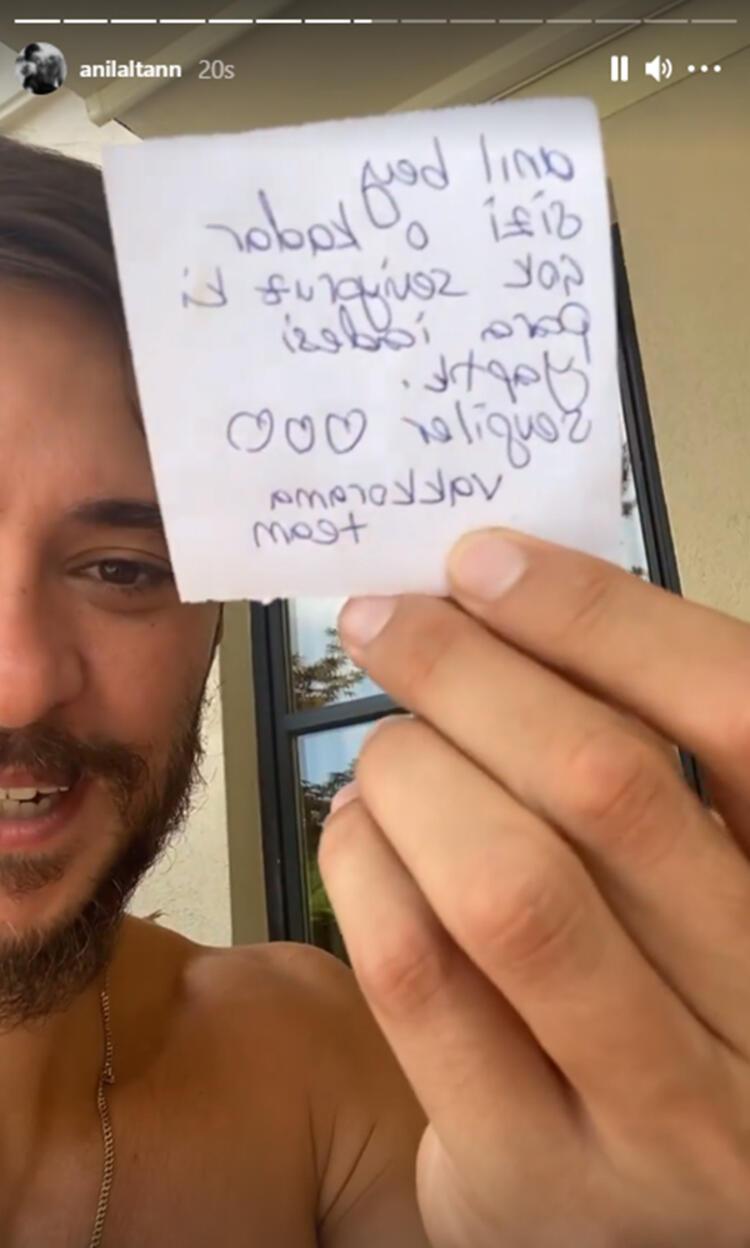 anilaltann 20s
anıl bey
sizi o kadar
çok seviyruz ki
para iadesi
yaptk.
sevgiler ♡♡♡
vakkorama
team